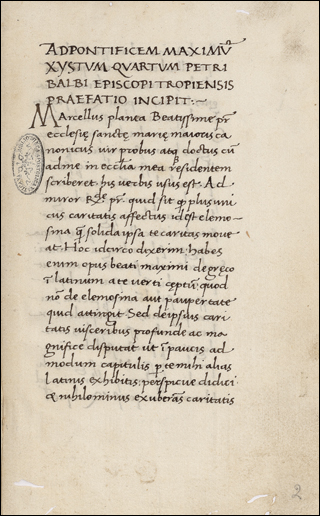 AD PONTIFICEM MAXIMŪ
XYSTUM QUARTUM PETRI
BALBI EPISCOPI TROPIENSIS
PRAEFATIO INCIPIT:~
Marcellus planea Beatissime pr̄
ecclesię sanctę marię maioris ca
nonicus vir probus atq doctus cū
ad me in eccl̄ia mea residentem
scriberet his verbis usus est. Ad
miror pr̄ quid sit q plus uni
cus caritatis affectus id est elemo-
sina q̄ solida ipsa te caritas moue
at. Hoc idcirco dixerim. habes
enim opus beati maximi de greco
ī latinum a te verti cęptū. quod
nō de elemosina aut paupertate
quid attingit. Sed de ipsius cari
tatis visceribus profunde ac ma
gnifice disputat ut ī paucis ad
modum capitulis p te mihi alias
latinis exhibitis perspicue didici
& nihilominus exuberās caritatis
2